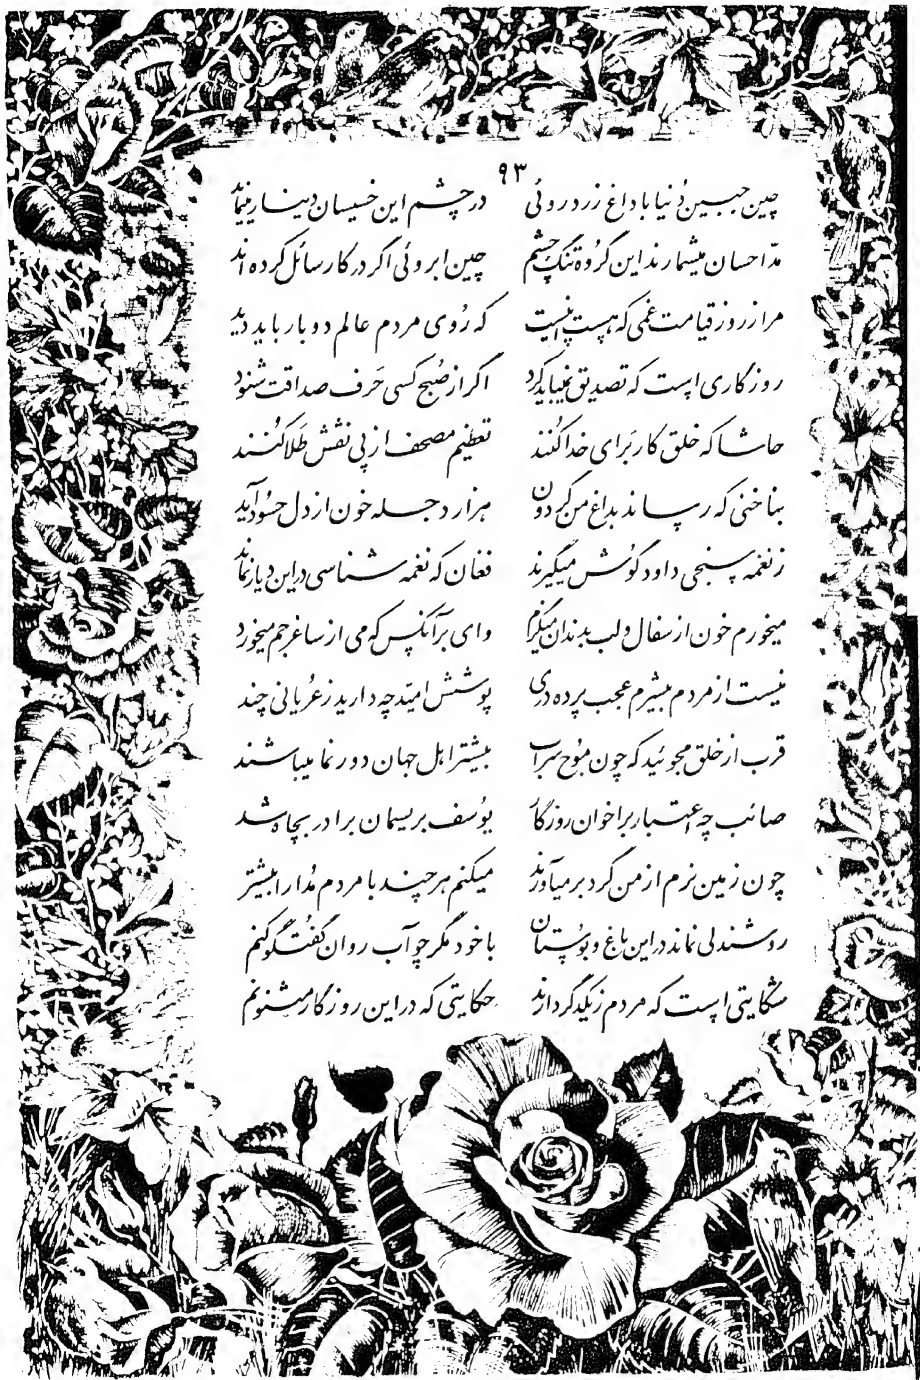 ۹۳
چین جبین دنیا با داغ زرد روئی در چشم این خسیسان دینار مینماید
مدّ احسان میشمارند این گروه تنگ چشم چین ابروئی اگر در کار سائل کرده‌اند
مرا ز روز قیامت غمی که هست اینست که رُوی مردم عالم دوباره باید دید
روزگاری است که تصدیق نمیباید کرد اگر از صُبح کسی حَرف صداقت شنود
حاشا که خلق کار بَرای خدا کُنند تعظیم مصحف از پی نقش طَلا کُنند
بناخنی که رساند بداغ من گردون هزار دجله خون از دل حسُود آید
ز نغمه سنجی داود گوش میگیرند فغان که نغمه شناسی در این دیار نماند
میخورم خون از سفال و لب بدندان میگزم وای بر آنکس که می از ساغر جم میخورد
نیست از مردم بیشرم عجب پرده دری پوشش امیّد چه دارید ز عُریانی چند
قرب از خلق مجوئید که چون موج سراب بیشتر اهل جهان دور نما میباشند
صائب چه اعتبار بر اخوان روزگار یُوسف بریسمان برادر بچاه شد
چون زمین نرم از من گرد برمیآورند میکنم هرچند با مردم مُدارا بیشتر
روشندلی نماند در این باغ و بوُستان با خود مگر چو آب روان گُفتگو کنم
شکایتی است که مردم ز یکدگر دارند حکایتی که در این روزگار میشنوم